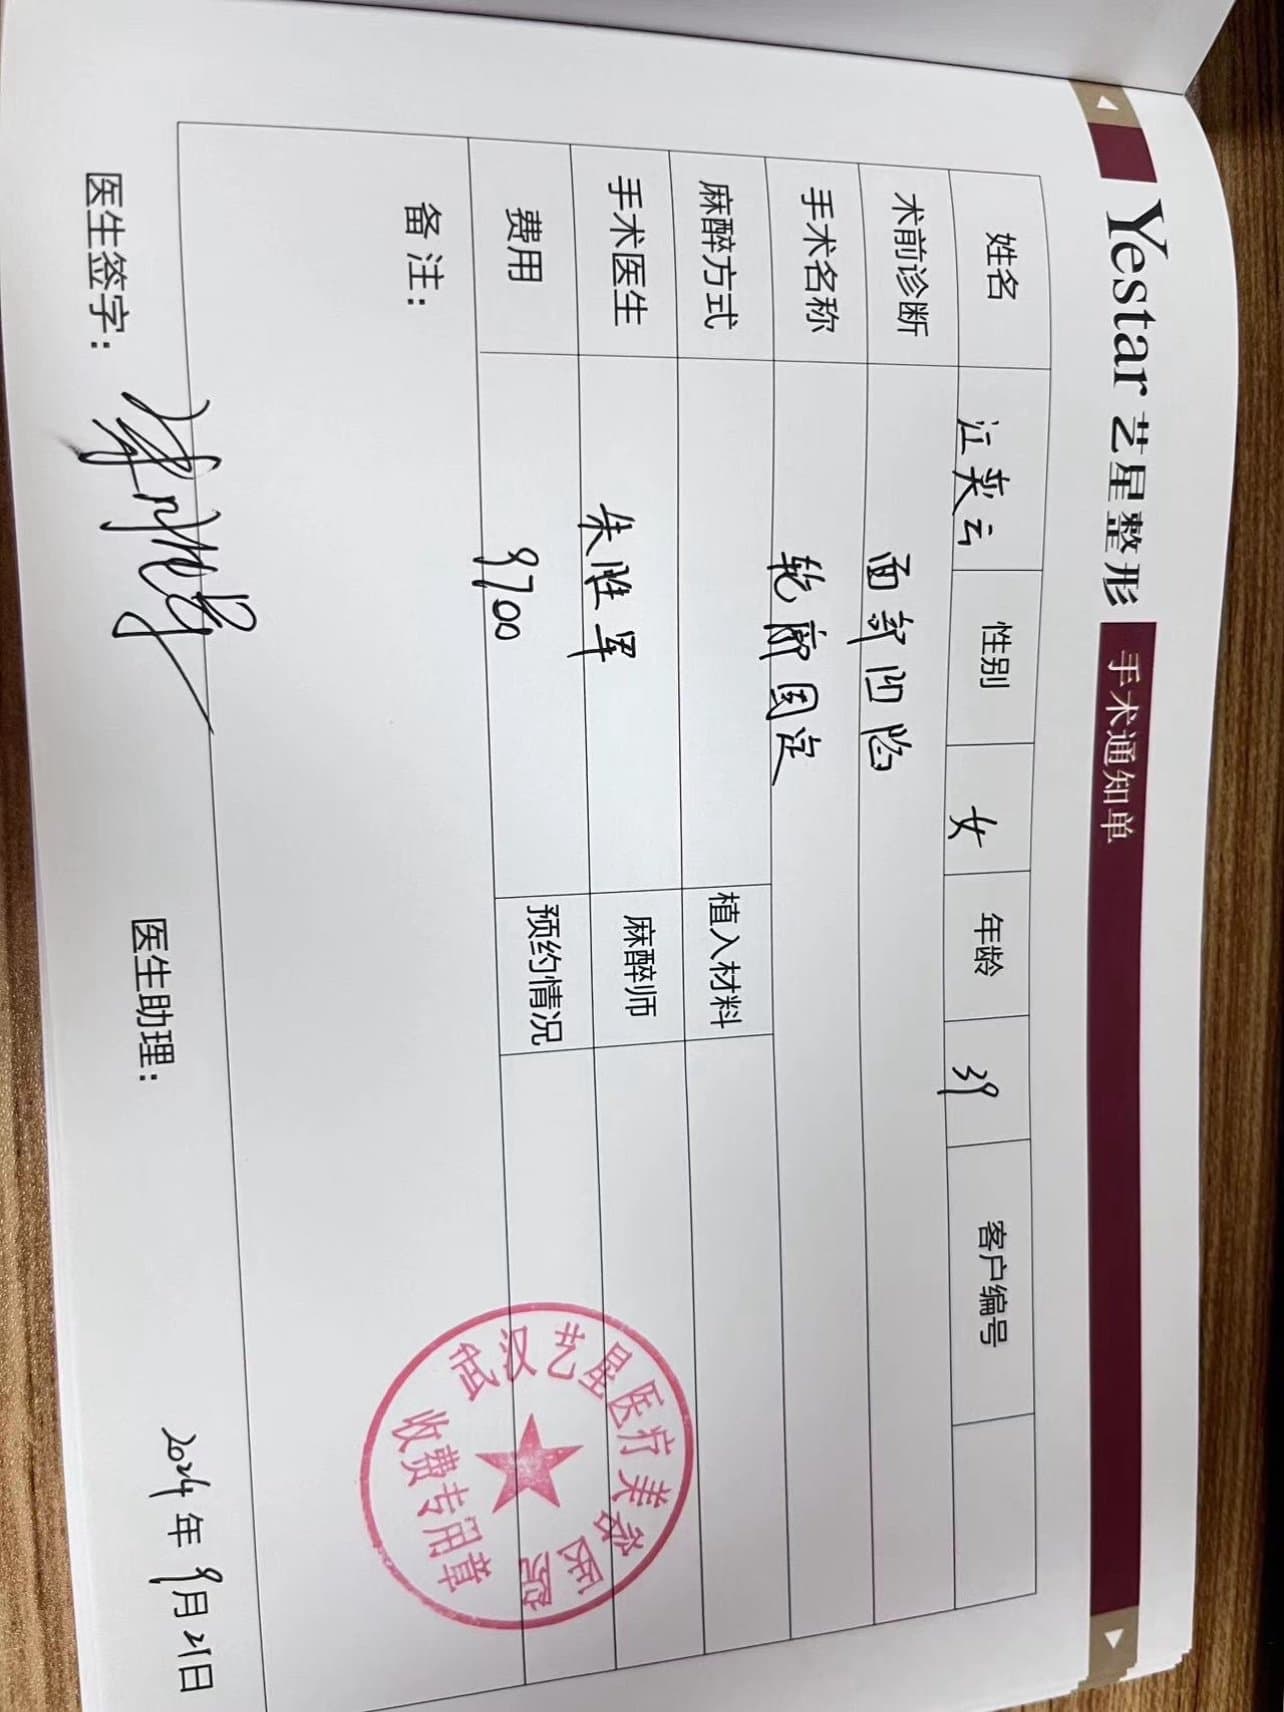 Yestar 艺星整形 手术通知单
姓名 江美云 性别 女 年龄 39 客户编号
术前诊断 面部凹陷
手术名称 轮廓固定
麻醉方式 植入材料
手术医生 朱胜军 麻醉师
费用 9700 预约情况
备注：
武汉艺星医疗美容医院
收费专用章
医生签字： 医生助理： 2024年9月21日